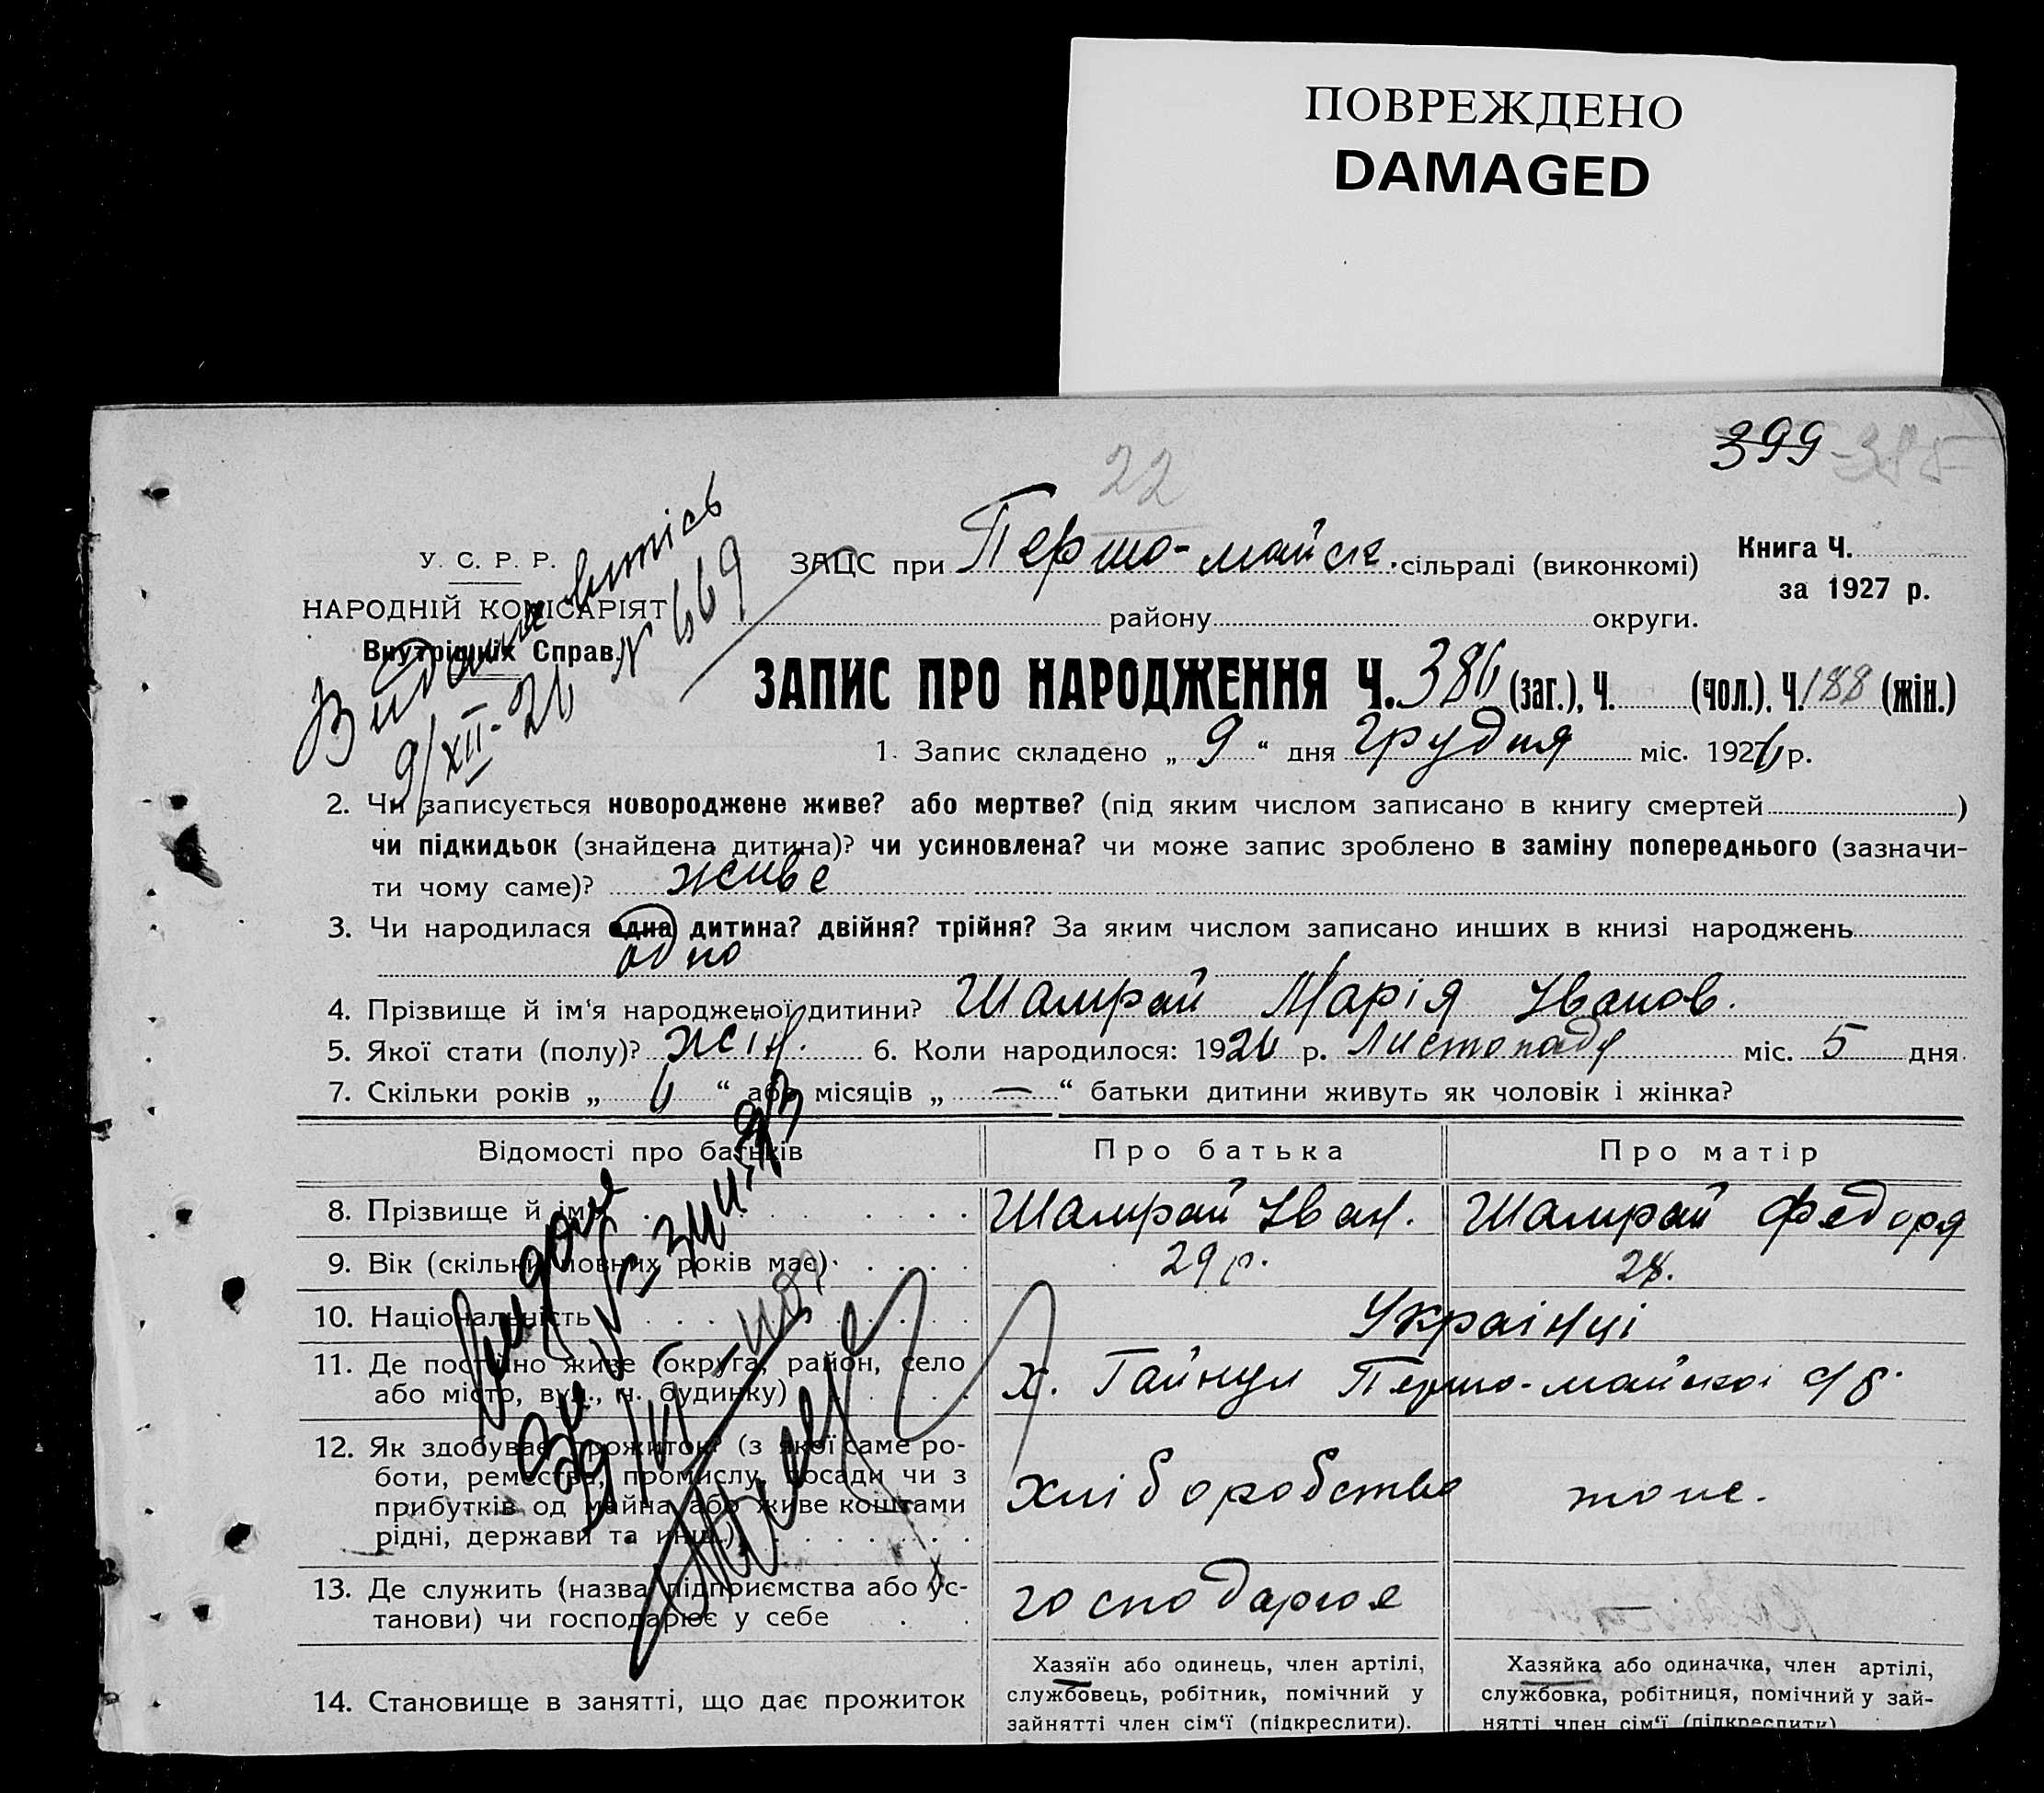 ПОВРЕЖДЕНО
DAMAGED
399 385
22
У. С. Р. Р.
НАРОДНІЙ КОМІСАРІЯТ
Внутрішніх Справ.
Видана витісь
9/XII-26 № 669
ЗАЦС при Першо-майск. сільраді (виконкомі)
району округи.
Книга Ч.
за 1927 р.
ЗАПИС ПРО НАРОДЖЕННЯ Ч. 386 (заг.), Ч. (чол.), Ч. 188 (жін.)
1. Запис складено „ 9 “ дня Грудня міс. 1926 р.
2. Чи записується новороджене живе? або мертве? (під яким числом записано в книгу смертей )
чи підкидьок (знайдена дитина)? чи усиновлена? чи може запис зроблено в заміну попереднього (зазначи-
ти чому саме)? живе
3. Чи народилася одна дитина? двійня? трійня? За яким числом записано инших в книзі народжень
одно
4. Прізвище й ім'я народженої дитини? Шамрай Марія Іванов.
5. Якої стати (полу)? жін. 6. Коли народилося: 1926 р. Листопаду міс. 5 дня
7. Скільки років „ 6 “ або місяців „ — “ батьки дитини живуть як чоловік і жінка?
Відомості про батьків Про батька Про матір
8. Прізвище й ім'я Шамрай Іван. Шамрай Федоря
9. Вік (скільки повних років має) 29 р. 28.
10. Національність Українці
11. Де постійно живе (округа, район, село
або місто, вул., н. будинку) х. Гайнул Першо-майскоі с/б.
12. Як здобуває прожиток? (з якої саме ро-
боти, ремества, промислу, посади чи з
прибутків од майна або живе коштами
рідні, держави та инш.) хліборобство тоже.
13. Де служить (назва підприємства або ус-
танови) чи господарює у себе господарює
14. Становище в занятті, що дає прожиток
Хазяїн або одинець, член артілі,
службовець, робітник, помічний у
зайнятті член сім'ї (підкреслити).
Хазяйка або одиначка, член артілі,
службовка, робітниця, помічний у зай-
нятті член сім'ї (підкреслити)